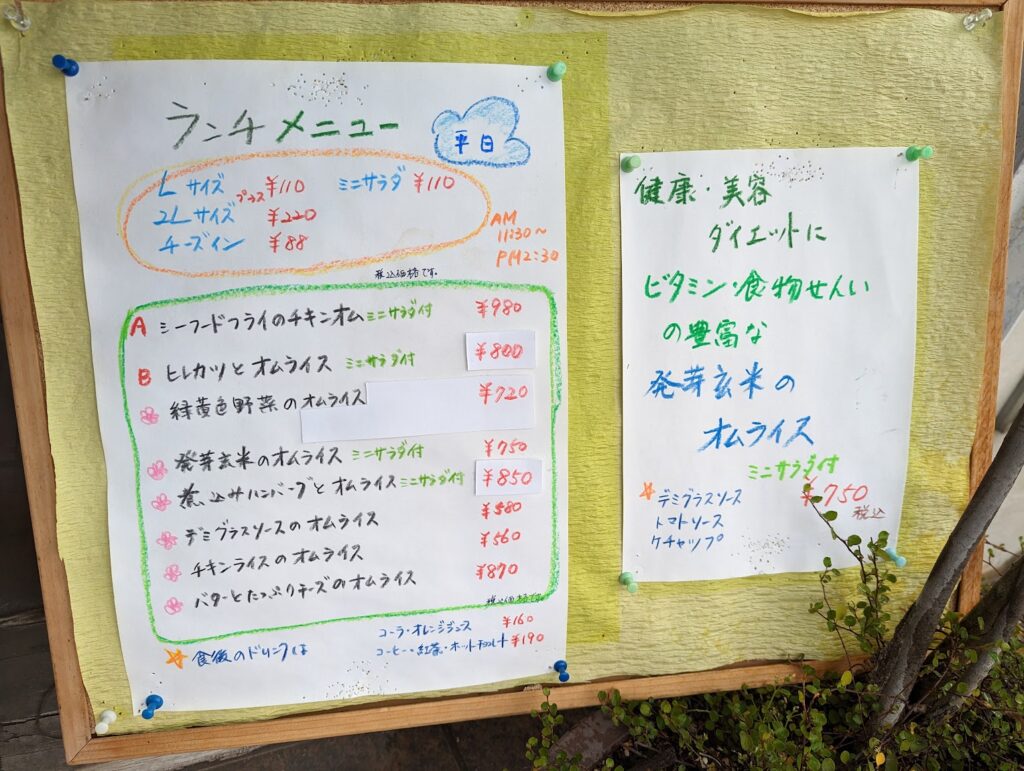 ランチメニュー
平日
Lサイズ プラス ¥110 ミニサラダ ¥110
2Lサイズ ¥220
チーズイン ¥88
AM
11:30～
PM2:30
税込価格です。
A シーフードフライのチキンオム ミニサラダ付 ¥980
B ヒレカツとオムライス ミニサラダ付 ¥800
緑黄色野菜のオムライス ¥720
発芽玄米のオムライス ミニサラダ付 ¥750
煮込みハンバーグとオムライス ミニサラダ付 ¥850
デミグラスソースのオムライス ¥580
チキンライスのオムライス ¥560
バターとたっぷりチーズのオムライス ¥870
税込価格です。
食後のドリンクは
コーラ・オレンジジュース ¥160
コーヒー・紅茶・ホットチョコレート ¥190
健康・美容
ダイエットに
ビタミン・食物せんい
の豊富な
発芽玄米の
オムライス
ミニサラダ付
¥750
税込
デミグラスソース
トマトソース
ケチャップ